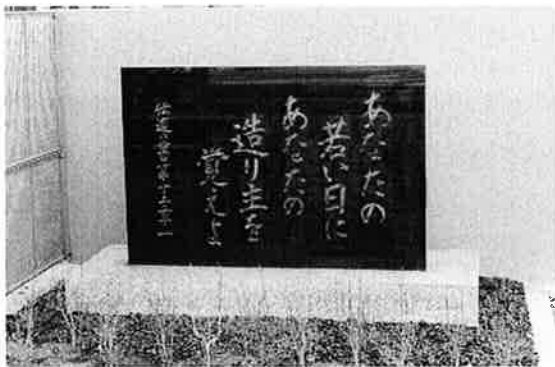 あなたの
若い日に
あなたの
造り主を
覚えよ
伝道の書第十二章一